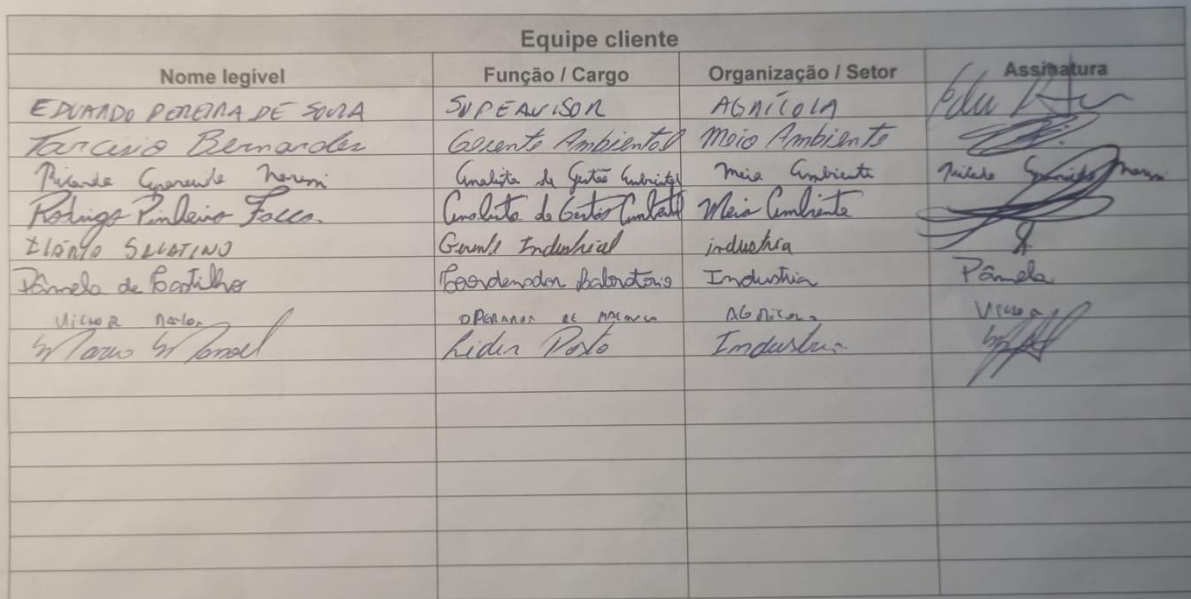 Equipe cliente
Nome legível Função / Cargo Organização / Setor Assinatura
EDUARDO PEREIRA DE SOUZA SUPERVISOR AGRÍCOLA Edu
Tarcisio Bernardes Gerente Ambiental Meio Ambiente
Analista de Gestão Ambiental Meio Ambiente
Rodrigo Pinheiro Analista de Gestão Ambiental Meio Ambiente
SALATINO Gerente Industrial industria
Pâmela de Castilho Coordenador Laboratório Industria Pâmela
VICTOR OPERADOR DE AGRICOLA VICTOR
Marco Manoel Lider Posto Industria